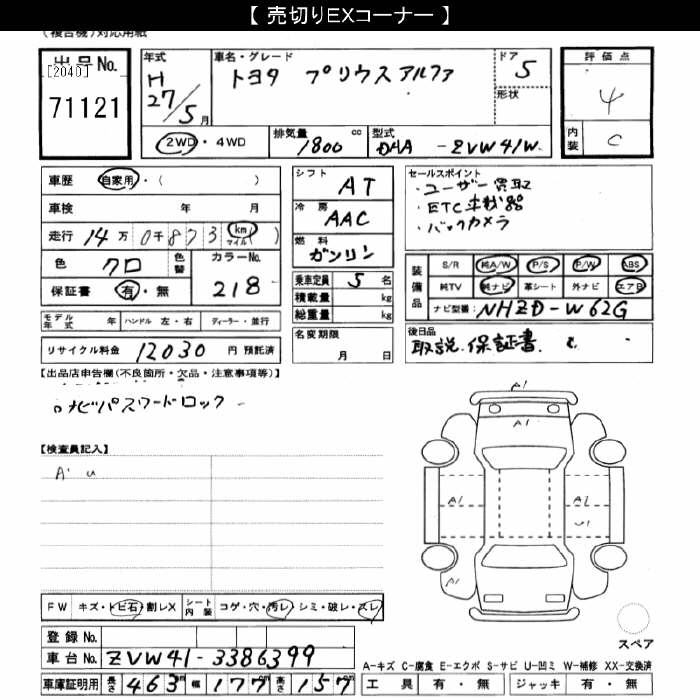 【 売切りEXコーナー 】
(複合機)対応用紙
出品No.
[2040]
71121
年式
H
27/5月
車名・グレード
トヨタ プリウスアルファ
ドア
5
形状
2WD・4WD
排気量
1800 cc
型式
DAA - ZVW41W
評価点
4
内装
C
車歴 自家用・( )
車検 年 月
走行 14万0千873 km マイル ( )
色 クロ 色替
カラーNo.
218
保証書 有・無
モデル年式 年 ハンドル 左・右 ディーラー・並行
リサイクル料金 12030 円 預託済
シフト
AT
冷房
AAC
燃料
ガソリン
乗車定員 5 名
積載量 kg
総重量 kg
名変期限
月 日
セールスポイント
・ユーザー買取
・ETC車載器
・バックカメラ
装備品
S/R 純A/W P/S P/W ABS
純TV 純ナビ 革シート 外ナビ エアB
ナビ型番: NHZD-W62G
後日品
取説. 保証書.
【出品店申告欄(不良箇所・欠品・注意事項等)】
ナビパスワードロック
【検査員記入】
A' u
F W キズ・トビ石・割レX シート内装 コゲ・穴・汚レ・シミ・破レ・スレ
登録No.
車台No. ZVW41-3386399
車庫証明用 長さ 463 幅 177 高さ 157
A1
A1
A1
A1
U1
A1
スペア
A-キズ C-腐食 E-エクボ S-サビ U-凹ミ W-補修 XX-交換済
工具 有・無 ジャッキ 有・無